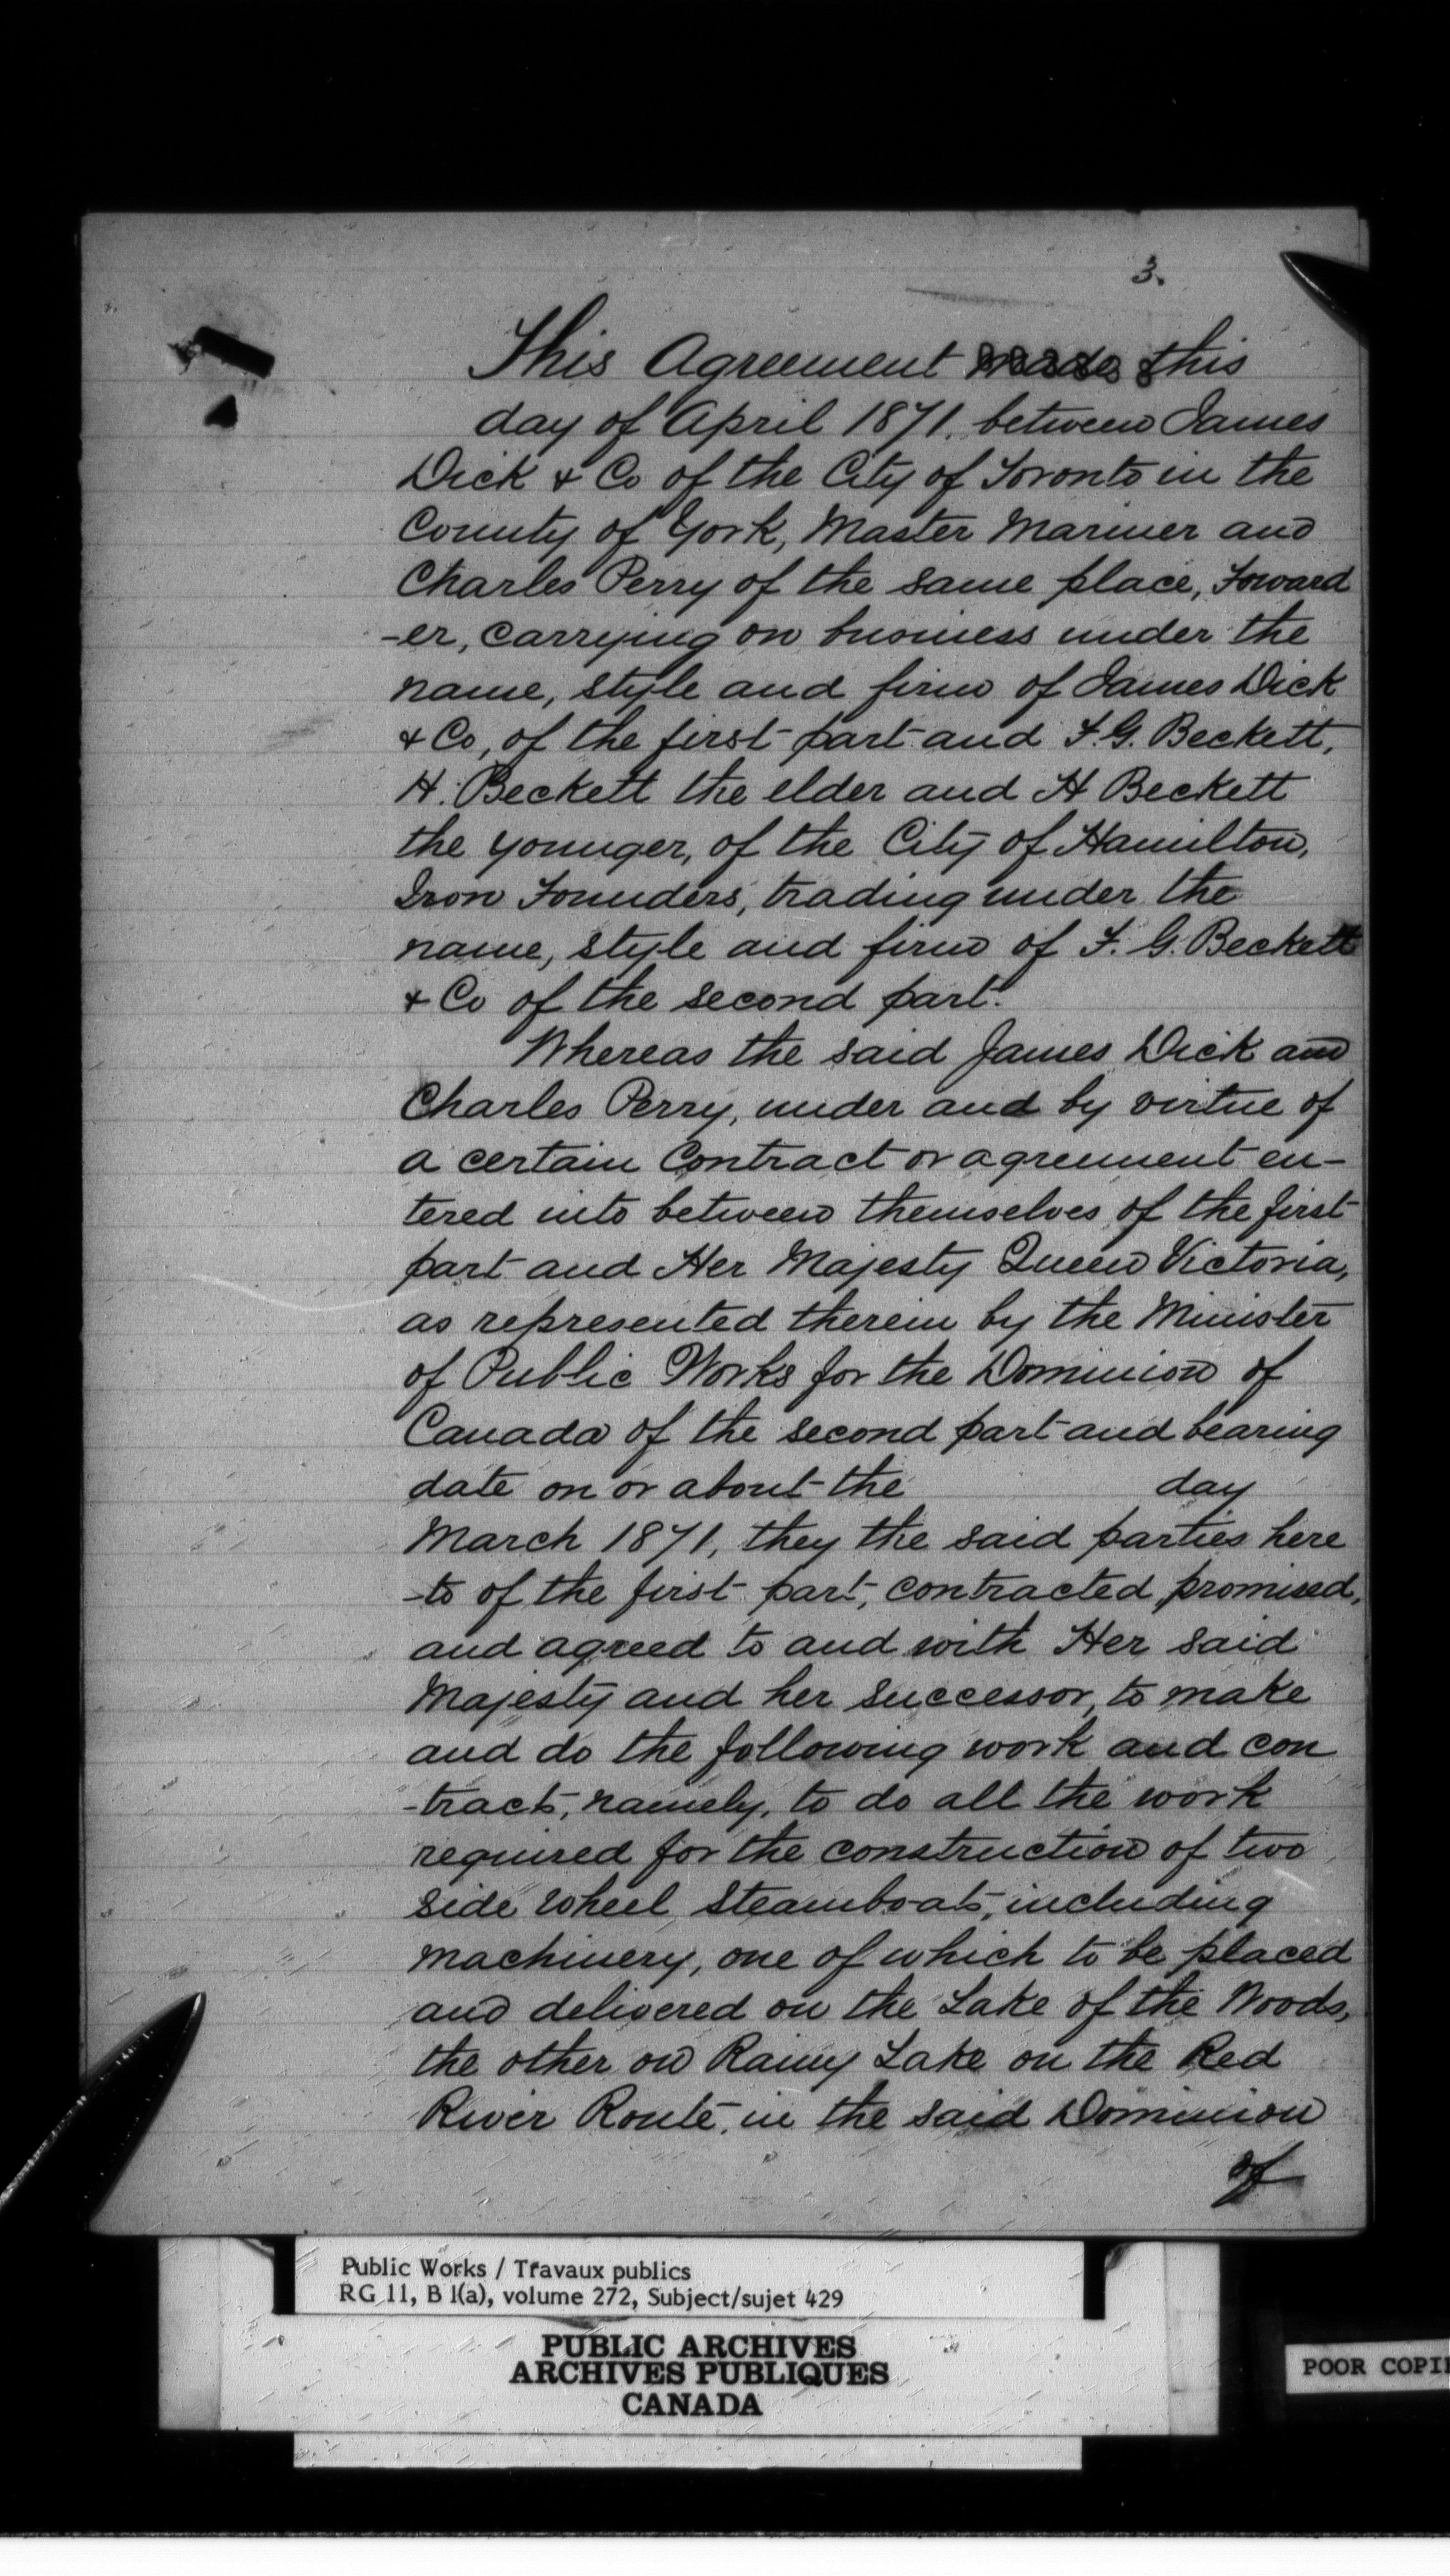 3.
This Agreement made this
day of April 1871, between James
Dick & Co of the City of Toronto in the
County of York, Master Mariner and
Charles Perry of the same place, Forward
-er, carrying on business under the
name, style and firm of James Dick
& Co, of the first part and F. G. Beckett,
H. Beckett the elder and H Beckett
the younger, of the City of Hamilton,
Iron Founders, trading under the
name, style and firm of F. G. Beckett
& Co of the second part.
Whereas the said James Dick and
Charles Perry, under and by virtue of
a certain Contract or agreement en-
tered into between themselves of the first
part and Her Majesty Queen Victoria,
as represented therein by the Minister
of Public Works for the Dominion of
Canada of the second part and bearing
date on or about the day
March 1871, they the said parties here
-to of the first part, contracted, promised,
and agreed to and with Her said
Majesty and her successor, to make
and do the following work and con
-tract, namely, to do all the work
required for the construction of two
side wheel steamboats, including
machinery, one of which to be placed
and delivered on the Lake of the Woods,
the other on Rainy Lake on the Red
River Route, in the said Dominion
of
Public Works / Travaux publics
RG 11, B 1(a), volume 272, Subject/sujet 429
PUBLIC ARCHIVES
ARCHIVES PUBLIQUES
CANADA
POOR COPI